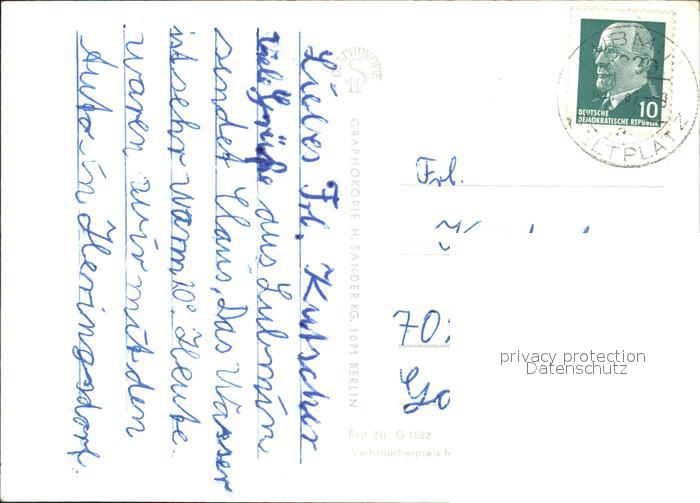 Liebes Frl. Kutscher
viele Grüße aus Lubmin
sendet Claus, Das Wasser
ist sehr warm 20°. Heute
waren wir mit den
Auto in Heringsdorf.
GRAPHOKOPIE
GRAPHOKOPIE H. SANDER KG, 1071 BERLIN
Best. Nr. G 1082
Verbraucherpreis M
DEUTSCHE
DEMOKRATISCHE REPUBLIK
10
LUBMIN
ZELTPLATZ
Frl.
K
70
privacy protection
Datenschutz